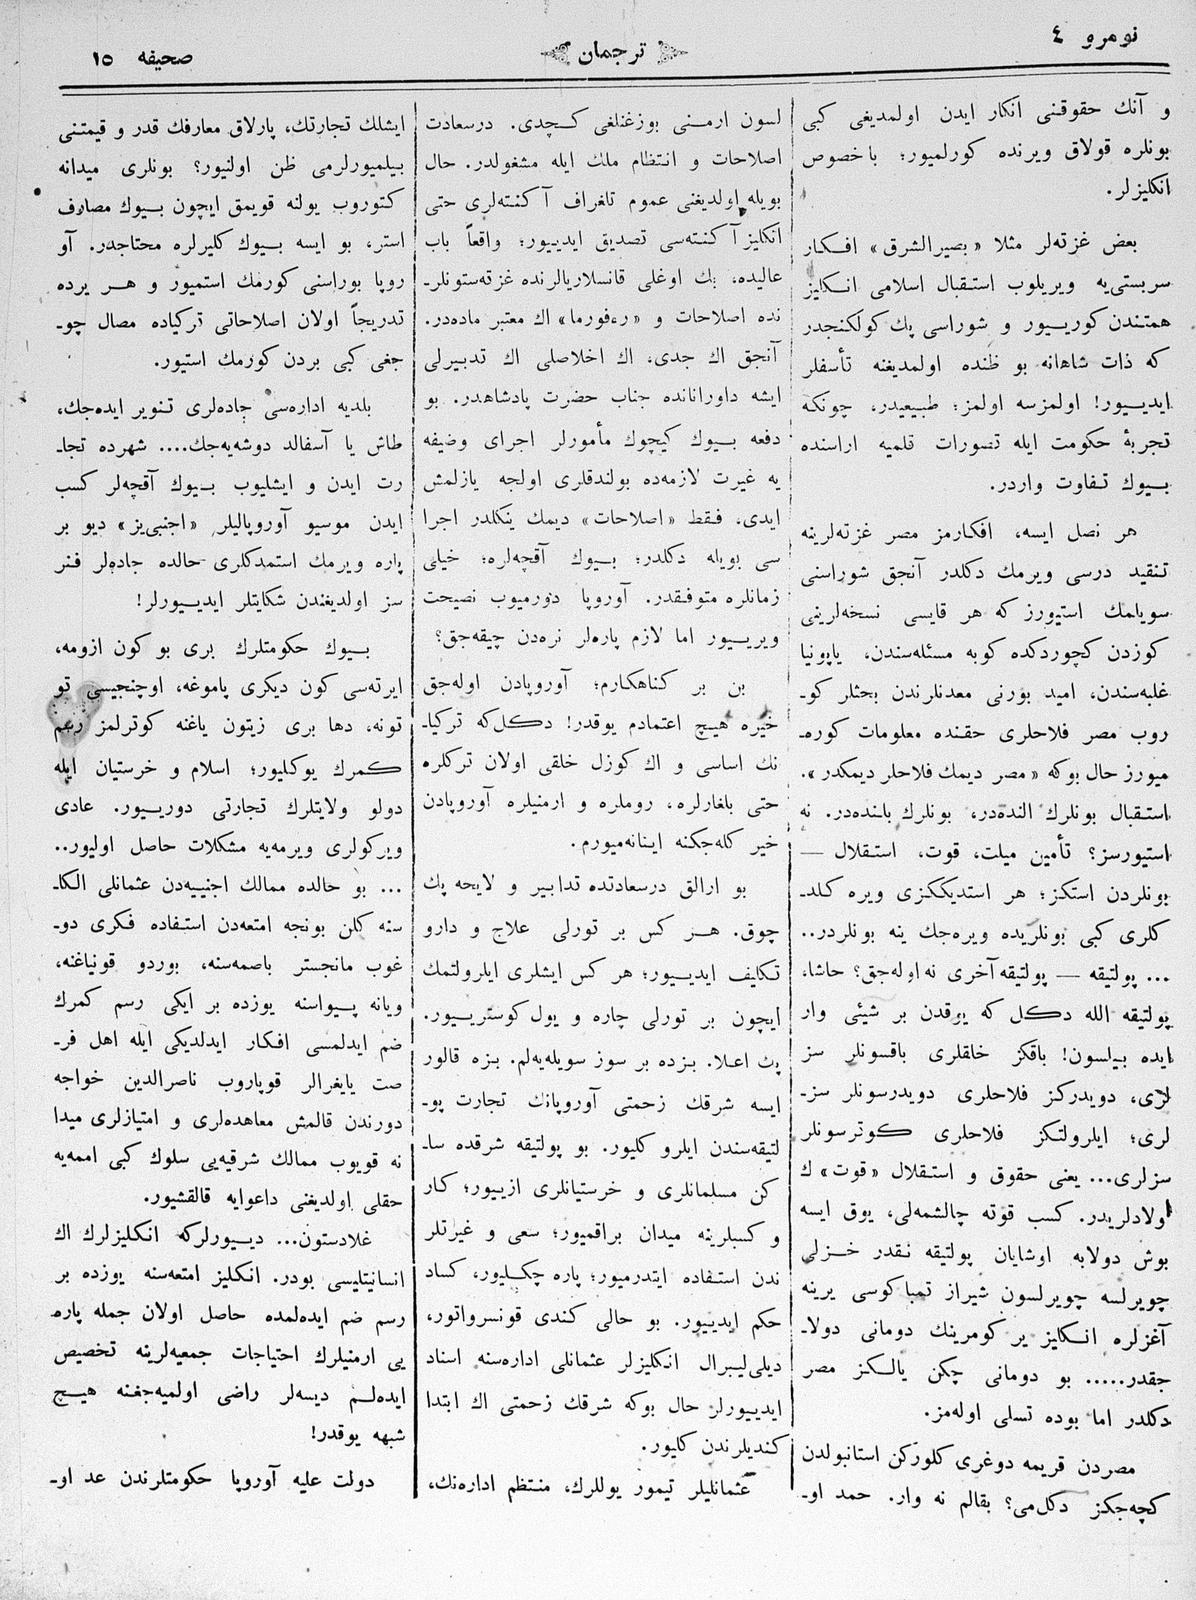 نومرو ٤
ترجمان
صحيفه ١٥
و آنك حقوقنى انكار ايدن اولمديغى كبى
بونلره قولاق ويرنده كورلميور؛ باخصوص
انكليزلر.
بعض غزته‌لر مثلا «بصيرالشرق» افكار
سربستى‌يه ويريلوب استقبال اسلامى انكليز
همتندن كوريبور و شوراسى پك كولكنجدر
كه ذات شاهانه بو ظنده اولمديغنه تأسفلر
ايديبور! اولمزسه اولمز؛ طبيعيدر، چونكه
تجربهٔ حكومت ايله تصورات قلميه اراسنده
بيوك تفاوت واردر.
هر نصل ايسه، افكارمز مصر غزته‌لرينه
تنقيد درسى ويرمك دكلدر آنجق شوراسنى
سويلمك استيورز كه هر قايسى نسخه‌لرينى
كوزدن كچوردكده كوبه مسئله‌سندن، ياپونيا
غلبه‌سندن، اميد بورنى معدنلرندن بحثلر كو-
روب مصر فلاحلرى حقنده معلومات كوره-
ميورز حال بوكه «مصر ديمك فلاحلر ديمكدر».
استقبال بونلرك النده‌در، بونلرك بانده‌در. نه
استيورسز؟ تأمين ميلت، قوت، استقلال —
بونلردن استكز؛ هر استديككزى ويره كلد-
كلرى كبى بونلريده ويره‌جك ينه بونلردر..
... پولتيقه — پولتيقه آخرى نه اوله‌جق؟ حاشا،
پولتيقه الله دكل كه يوقدن بر شيئى وار
ايده بيلسون! باقكز خلقلرى باقسونلر سز
لرى، دويدركز فلاحلرى دويدرسونلر سز-
لرى؛ ايلرولتكز فلاحلرى كوترسونلر
سزلرى... يعنى حقوق و استقلال «قوت» ك
اولادلريدر. كسب قوته چالشمه‌لى، يوق ايسه
بوش دولابه اوشايان پولتيقه نقدر خزلى
چويرلسه چويرلسون شيراز تمباكوسى يرينه
آغزلره انكليز ير كومرينك دومانى دولا-
جقدر..... بو دومانى چكن يالكز مصر
دكلدر اما بوده تسلى اوله‌مز.
مصردن قريمه دوغرى كلوركن استانبولدن
كچه‌جكز دكل‌مى؟ بقالم نه وار. حمد او-
لسون ارمنى بوزغنلغى كچدى. درسعادت
اصلاحات و انتظام ملك ايله مشغولدر. حال
بويله اولديغنى عموم تلغراف آكنته‌لرى حتى
انكليز آكنته‌سى تصديق ايدييور؛ واقعاً باب
عاليده، بك اوغلى قانسلاريالرنده غزته ستونلر-
نده اصلاحات و «ره‌فورما» اك معتبر ماده‌در.
آنجق اك جدى، اك اخلاصلى اك تدبيرلى
ايشه داورانانده جناب حضرت پادشاهدر. بو
دفعه بيوك كيچوك مأمورلر اجراى وضيفه
يه غيرت لازمه‌ده بولندقلرى اولجه يازلمش
ايدى، فقط «اصلاحات» ديمك ينكلدر اجرا
سى بويله دكلدر؛ بيوك آقچه‌لره؛ خيلى
زمانلره متوفقدر. آوروپا دورميوب نصيحت
ويريبور اما لازم پاره‌لر نره‌دن چيقه‌جق؟
بن بر كناهكارم؛ آوروپادن اوله‌جق
خيره هيچ اعتمادم يوقدر! دكل‌كه تركيا-
نك اساسى و اك كوزل خلقى اولان تركلره
حتى بلغارلره، روملره و ارمنيلره آوروپادن
خير كله‌جكنه اينانه‌ميورم.
بو ارالق درسعادتده تدابير و لايحه پك
چوق. هر كس بر تورلى علاج و دارو
تكليف ايدييور؛ هر كس ايشلرى ايلرولتمك
ايچون بر تورلى چاره و يول كوستريبور.
پك اعلا. بزده بر سوز سويله‌يه‌لم. بزه قالور
ايسه شرقك زحمتى آوروپانك تجارت پو-
لتيقه‌سندن ايلرو كليور. بو پولتيقه شرقده سا-
كن مسلمانلرى و خرستيانلرى ازييور؛ كار
و كسبلرينه ميدان براقميور؛ سعى و غيرتلر
ندن استفاده ايتدرميور؛ پاره چكليور، كساد
حكم ايدييور. بو حالى كندى قونسرواتور،
ديلى‌ليبرال انكليزلر عثمانلى اداره‌سنه اسناد
ايدييورلر حال بوكه شرقك زحمتى اك ابتدا
كنديلرندن كليور.
عثمانليلر تيمور يوللرك، منتظم اداره‌نك،
ايشلك تجارتك، پارلاق معارفك قدر و قيمتنى
بيلميورلرمى ظن اولنيور؟ بونلرى ميدانه
كتوروب يولنه قويمق ايچون بيوك مصارف
استر، بو ايسه بيوك كليرلره محتاجدر. آو
روپا بوراسنى كورمك استميور و هر يرده
تدريجاً اولان اصلاحاتى تركياده مصال چو-
جغى كبى بردن كورمك استيور.
بلديه اداره‌سى جاده‌لرى تنوير ايده‌جك،
طاش يا آسفالد دوشه‌يه‌جك.... شهرده تجا-
رت ايدن و ايشليوب بيوك آقچه‌لر كسب
ايدن موسيو آوروپاليلر «اجنبى‌يز» ديو بر
پاره ويرمك استمدكلرى حالده جاده‌لر فنر
سز اولديغندن شكايتلر ايدييورلر!
بيوك حكومتلرك برى بو كون ازومه،
ايرته‌سى كون ديكرى پاموغه، اوچنجيسى تو
تونه، دها برى زيتون ياغنه كوترلمز رعم
كمرك يوكليور؛ اسلام و خرستيان ايله
دولو ولايتلرك تجارتى دورييور. عادى
ويركولرى ويرمه‌يه مشكلات حاصل اوليور..
... بو حالده ممالك اجنبيه‌دن عثمانلى الكا-
سنه كلن بونجه امتعه‌دن استفاده فكرى دو-
غوب مانچستر باصمه‌سنه، بوردو قونياغنه،
ويانه پيواسنه يوزده بر ايكى رسم كمرك
ضم ايدلمسى افكار ايدلديكى ايله اهل فر-
صت يايغرالر قوپاروب ناصرالدين خواجه
دورندن قالمش معاهده‌لرى و امتيازلرى ميدا
نه قويوب ممالك شرقيه‌يى سلوك كبى اممه‌يه
حقلى اولديغنى داعوايه قالقشيور.
غلادستون... دييورلركه انكليزلرك اك
انسانيتليسى بودر. انكليز امتعه‌سنه يوزده بر
رسم ضم ايده‌لمده حاصل اولان جمله پاره
يى ارمنيلرك احتياجات جمعيه‌لرينه تخصيص
ايده‌لم ديسه‌لر راضى اولميه‌جغنه هيچ
شبهه يوقدر!
دولت عليه آوروپا حكومتلرندن عد او-